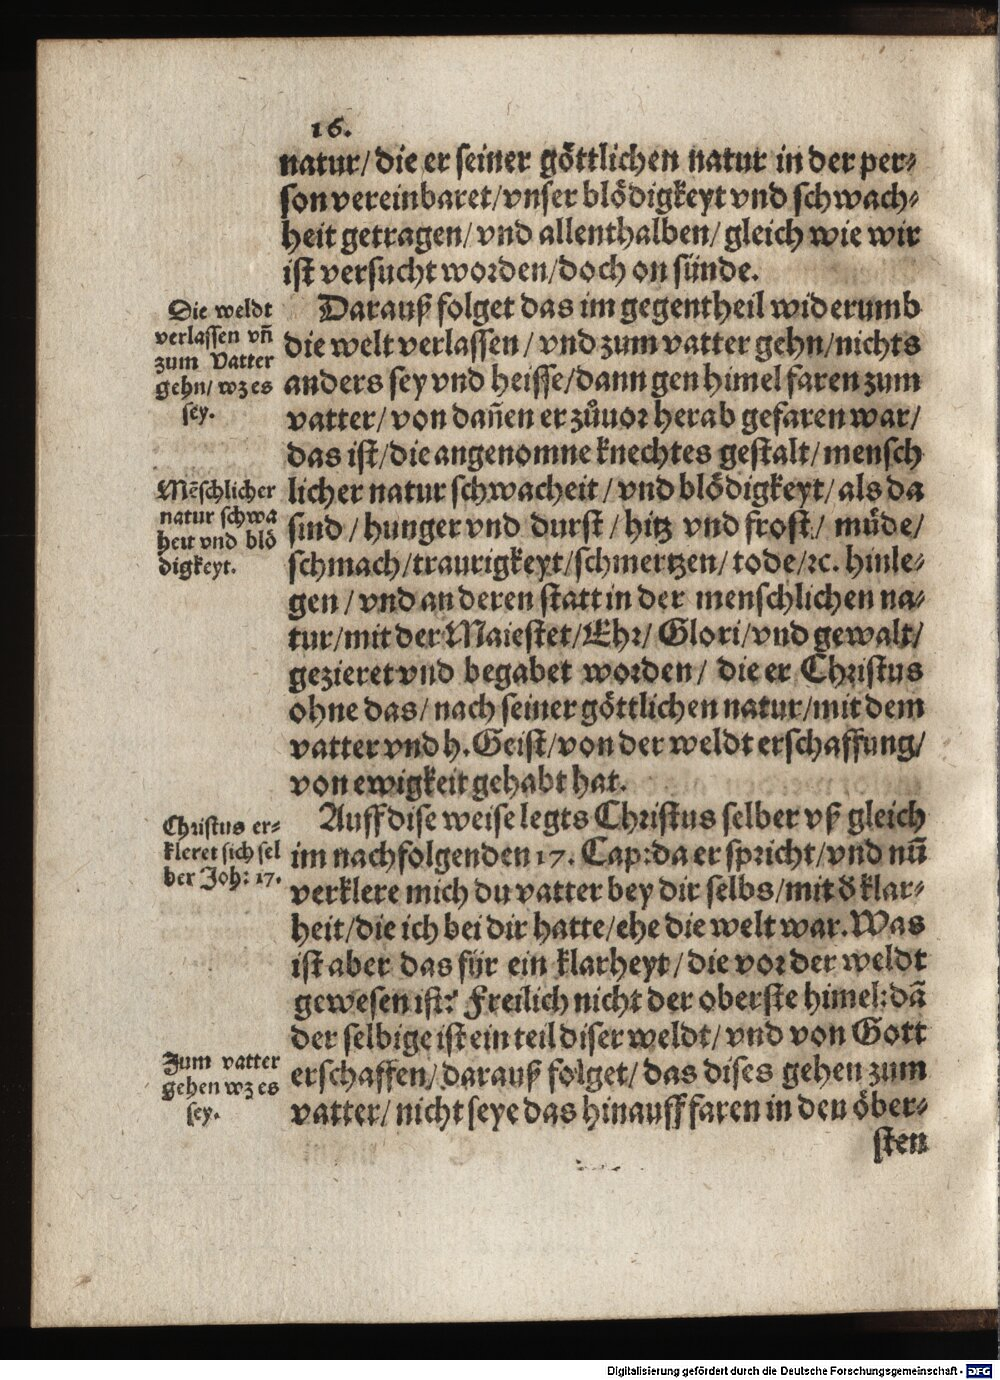 16.
natur/ die er seiner göttlichen natur in der per⸗
son vereinbaret/ vnser blödigkeyt vnd schwach⸗
heit getragen/ vnd allenthalben/ gleich wie wir
ist versucht worden/ doch on sünde.
Die weldt
verlassen vñ
zum Vatter
gehn/ wz es
sey.
Darauß folget das im gegentheil widerumb
die welt verlassen/ vnd zum vatter gehn/ nichts
anders sey vnd heisse/ dann gen himel faren zum
vatter/ von dañen er zůuor herab gefaren war/
das ist/ die angenomne knechtes gestalt/ mensch
Mẽschlicher
natur schwa
heit vnd blö
digkeyt.
licher natur schwacheit/ vnd blödigkeyt/ als da
sind/ hunger vnd durst/ hitz vnd frost/ müde/
schmach/ traurigkeyt/ schmertzen/ tode/ ꝛc. hinle⸗
gen/ vnd an deren statt in der menschlichen na⸗
tur/ mit der Maiestet/ Ehr/ Glori/ vnd gewalt/
gezieret vnd begabet worden/ die er Christus
ohne das/ nach seiner göttlichen natur/ mit dem
vatter vnd h. Geist/ von der weldt erschaffung/
von ewigkeit gehabt hat.
Christus er⸗
kleret sich sel
ber Joh: 17.
Auff dise weise legts Christus selber vß gleich
im nachfolgenden 17. Cap: da er spricht/ vnd nũ
verklere mich du vatter bey dir selbs/ mit d̕ klar⸗
heit/ die ich bei dir hatte/ ehe die welt war. Was
ist aber das für ein klarheyt/ die vor der weldt
gewesen ist? Freilich nicht der oberste himel: dã
der selbige ist ein teil diser weldt/ vnd von Gott
Zum vatter
gehen wz es
sey.
erschaffen/ darauß folget/ das dises gehen zum
vatter/ nicht seye das hinauff faren in den öber⸗
sten
Digitalisierung gefördert durch die Deutsche Forschungsgemeinschaft - DFG